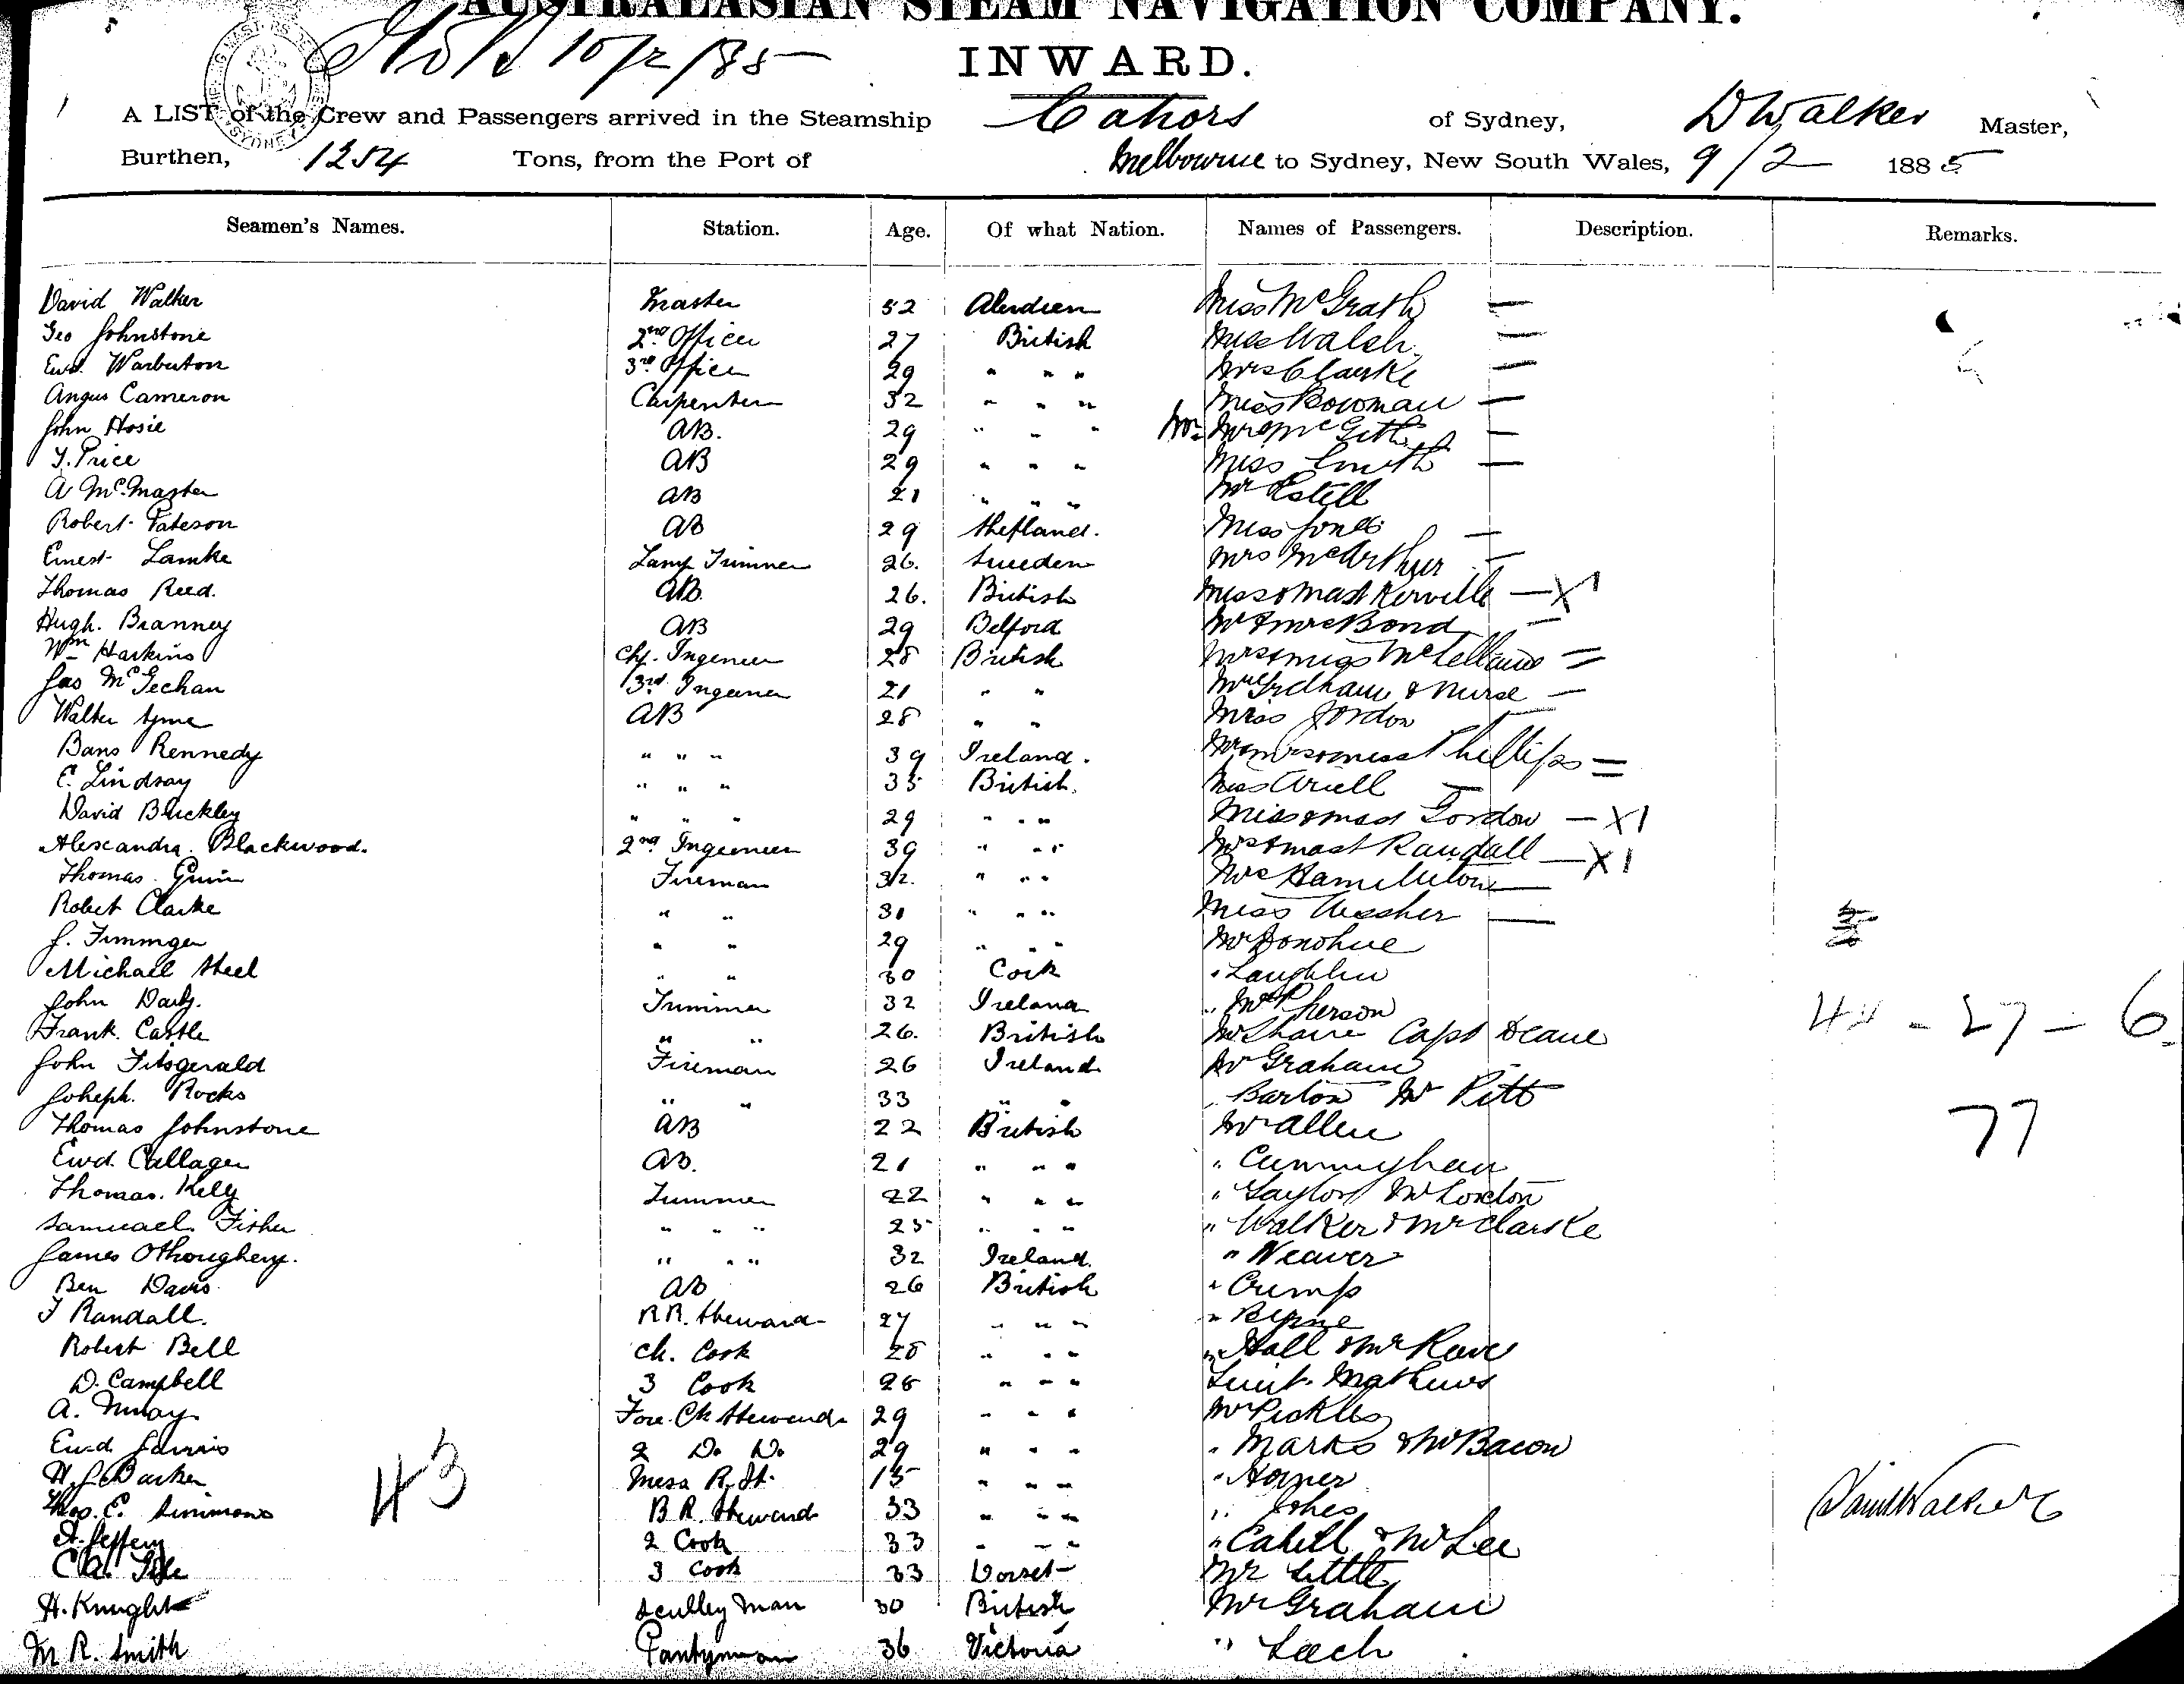 AUSTRALASIAN STEAM NAVIGATION COMPANY.
INWARD.
A LIST of the Crew and Passengers arrived in the Steamship Cahors of Sydney, D Walker Master,
Burthen, 1254 Tons, from the Port of Melbourne to Sydney, New South Wales, 9/2 1885
Seamen's Names. Station. Age. Of what Nation. Names of Passengers. Description. Remarks.
David Walker Master 52 Aberdeen Miss McGrath —
Geo Johnstone 2nd Officer 27 British Miss Walsh —
Ewd. Warburton 3rd Officer 29 " " " Mrs Clarke —
Angus Cameron Carpenter 32 " " " Miss Bowman —
John Hosie AB. 29 " " "
T. Price AB 29 " " " Miss Smith —
A McMaster AB 21 " " " Mr Estell
Robert Pateson AB 29 Shetland. Miss Jones —
Ernest Lamke Lamp Trimmer 26. Sweden Mrs McArthur —
Thomas Reed. AB. 26. British Miss & Mast Kerville — X 1
Hugh. Branney AB 29 Belford Mr & Mrs Bond —
Wm Harkins Chf. Ingeneer 28 British Mrs & Miss McLelland =
Jas McGechan 3rd Ingeneer 21 " " Mrs Graham & Nurse —
Walter Syme AB 28 " " Miss Jordon —
Bans Kennedy " " " 39 Ireland. Mr Mrs & Miss Phillips =
E. Lindsay " " " 35 British. Miss Ariell —
David Buckley " " " 29 " " " Miss & Mast Gordon — X 1
Alexandra. Blackwood. 2nd Ingeneer 39 " " " Mrs & Mast Randall — X 1
Thomas. Fireman 32. " " " Mrs Hamilton —
Robert Clarke " " 31 " " " Miss —
J. " " 29 " " " Mr Donohue
Michael Steel " " 30 Cork " Laughlin
John Daly. Trimmer 32 Ireland " McPherson
Frank. Castle " " 26. British Mr Capt Deane
44 - 27 - 6
John Fitsgerald Fireman 26 Ireland Mr Graham
Joheph. Rocks " " 33 " " " Barton Mr Pitt
Thomas Johnstone AB 22 British Mr Allen
77
Ewd. Callagen AB. 21 " " " " Cunningham
Thomas. Kelly Trimmer 22 " " " " Taylor Mr Loxton
Samuael. Fisher " " " 25 " " " " Walker & Mr Clarke
James " " " 32 Ireland. " Weaver
Ben Davis AB 26 British " Crump
J Randall. B.R. Steward 27 " " " " Byrne
Robert Bell Ch. Cook 28 " " " " Hall & Mr
D. Campbell 3 Cook 28 " " " Lieut. Mathews
A. Fore. Ch Steward 29 " " " Mr Pickles
Ewd 2 Do Do 29 " " " " Marks & Mr Bacon
43
H. J. Barker Mess R. St. 15 " " " " Horner
Thos. E. Simmons B R. Steward 33 " " " " Jones
David Walker
A. Jeffery 2 Cook 33 " " " " Cahill & Mr Lee
3 Cook 33 Dorset Mr Little
H. Knight Sculley man 30 British Mr Graham
M R. Smith Pantryman 36 Victoria " Leech